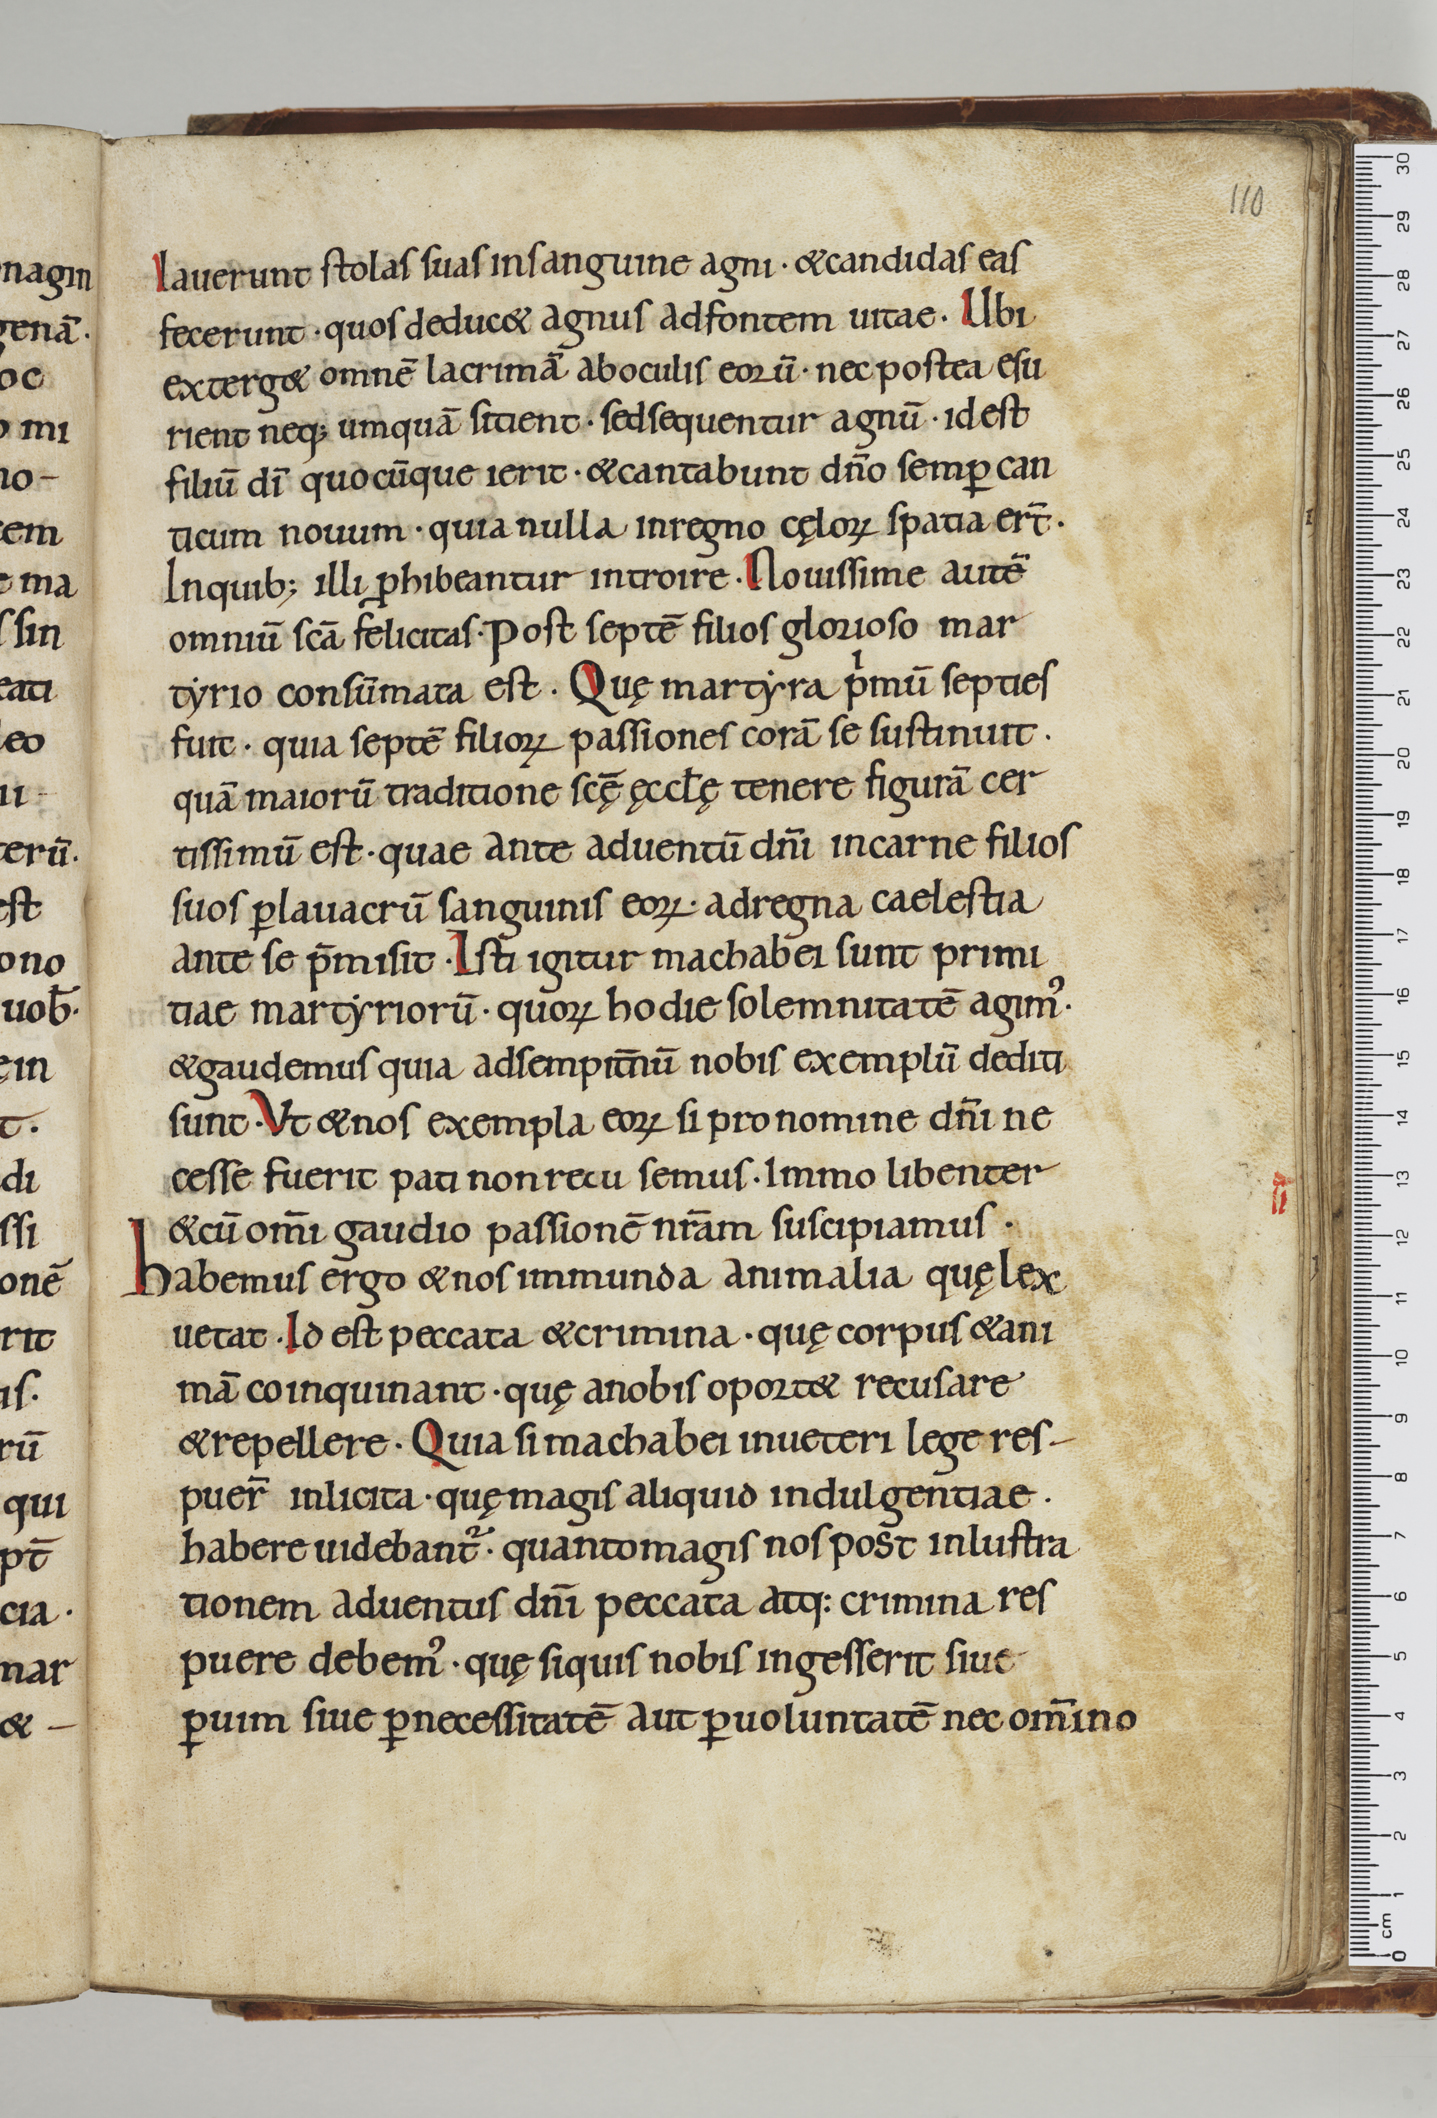 110
lauerunt stolas suas insanguine agni · &candidas eas
fecerunt · quos deduc& agnus adfontem uitae · Ubi
exterg& omnē lacrimā aboculis eorū · nec postea esu
rient neq; umquā sitient · sedsequentur agnū · idest
filiū dī quocūque ierit · &cantabunt dn̄o semꝑ can
ticum nouum · quia nulla inregno cęloꝝ spatia ert̄ ·
Inquib; illi ꝓhibeantur introire · Nouissime autē
omniū scā felicitas · Post septē filios glorioso mar
tyrio consūmata est · Quę martyra pͥmū septies
fuit · quia septē filioꝝ passiones corā se sustinuit ·
quā maiorū traditione scę̄ ęccłę tenere figurā cer
tissimū est · quae ante aduentū dn̄i incarne filios
suos ꝑlauacrū sanguinis eoꝝ · adregna caelestia
ante se p̄misit · Isti igitur machabei sunt primi
tiae martyriorū · quoꝝ hodie solemnitatē agimꝰ ·
&gaudemus quia adsempit̄nū nobis exemplū dediti
sunt · Vt &nos exempla eoꝝ si pro nomine dn̄i ne
cesse fuerit pati nonrecu semus · Immo libenter
&cū om̄i gaudio passionē nr̄am suscipiamus ·
habemus ergo &nos immunda animalia quę lex
uetat · Id est peccata &crimina · quę corpus &ani
mā coinquinant · quę anobis oport& recusare
&repellere · Quia si machabei inueteri lege res-
puer̄ inlicita · quę magis aliquid indulgentiae ·
habere uidebant᷑ · quantomagis nos post inlustra
tionem aduentus dn̄i peccata atq: crimina res
puere debemꝰ · quę siquis nobis ingesserit siue
ꝑuim siue ꝑnecessitatē aut ꝑuoluntatē nec om̄ino
nagin
genā ·
oc
mi
no-
tem
ma
sin
eati
leo
erū ·
est
ono
uob̄ ·
in
t ·
di
ssi
onē
rit
is ·
rū
qui
pt̄
cia ·
mar
& -
0 cm 1 2 3 4 5 6 7 8 9 10 11 12 13 14 15 16 17 18 19 20 21 22 23 24 25 26 27 28 29 30